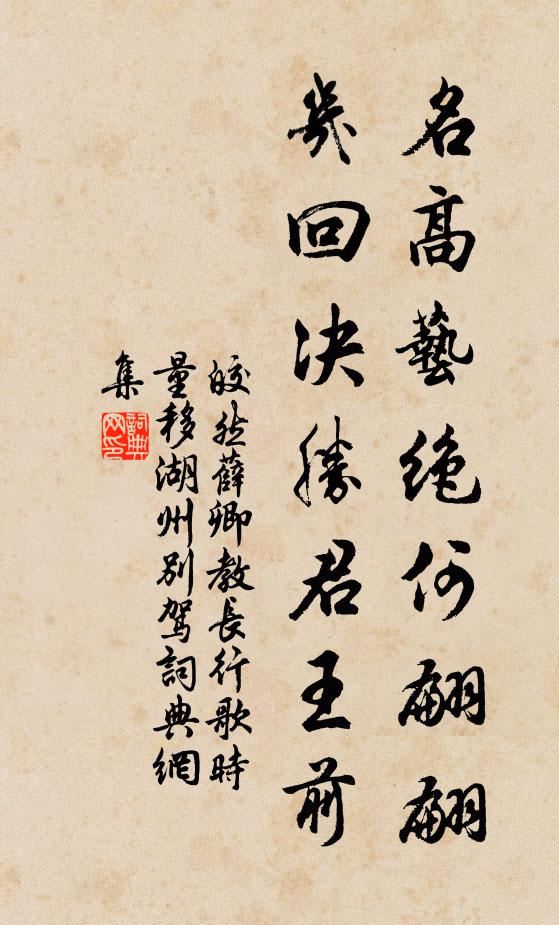 名高藝绝何翩翩
幾回决勝君王前
皎然薛卿教長行歌時
量移湖州别駕詞典網
集
詞典
网印